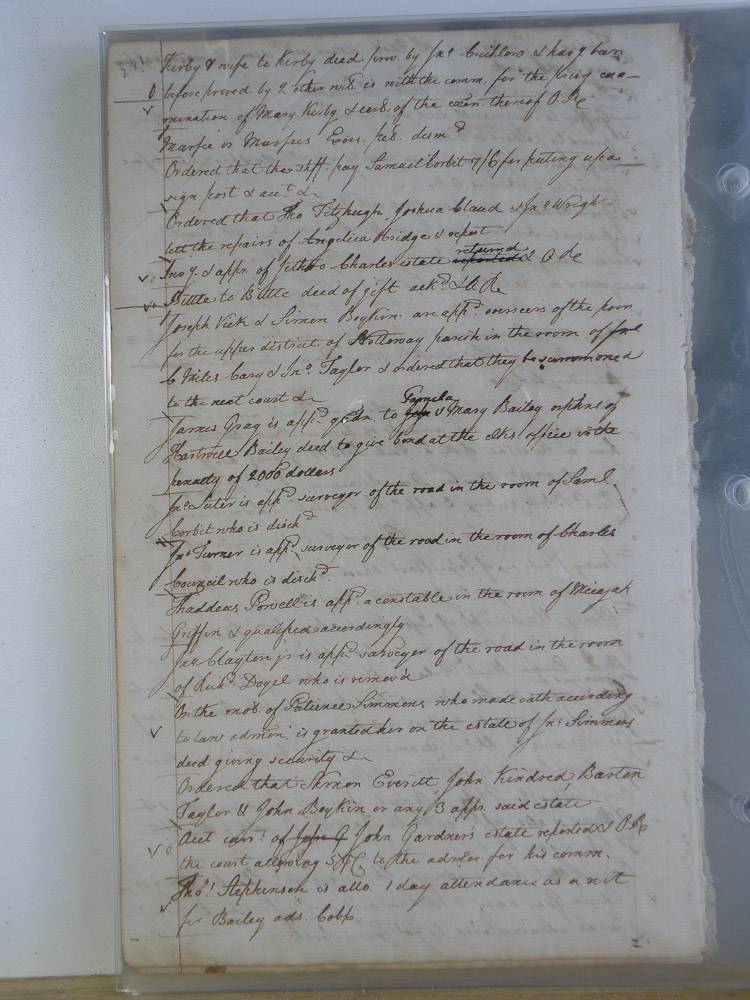 Kirby & wife to Kirby deed prov. by Jno. & having been
before proved by 2 other wits. is with the comm. for the privy exa-
mination of Mary Kirby & cert. of the exon. thereof O. Re
Ordered that the shff. pay Samuel Corbit 7/6 for puting up a
sign post & acct. &c
Ordered that Tho Fitzhugh, Joshua Claud & Jno Wright
lett the repairs of Angelica Bridge & report
Invy. & appr. of Charles estate reported returned & O Re
Bittle to Bittle deed of gift ackd. & O. Re
Joseph Vick & Simon Boykin are appd. overseers of the poor
for the upper district of Nottoway parish in the room of
C Miles Cary & Jno. Taylor & ordered that they be summoned
to the next court &c
James Gray is appd. gdn. to Pamela & Mary Bailey orphns of
Hartwell Bailey decd to give bond at the clks. office in the
penalty of 2000 dollars
Jno. Suter is appd surveyor of the road in the room of Saml.
Corbit who is dischd.
Jno. Turner is appd. surveyor of the road in the room of Charles
Council who is dischd.
Thaddeus Powell is appd. a constable in the room of Micajah
Griffin & qualified accordingly
Jno Clayton jr is appd. surveyor of the road in the room
of Richd. Doyel who is remov'd
On the mot. of Patience Simmons who made oath according
to law admon. is granted her on the estate of Jno. Simmons
decd giving security &c
Ordered that Everitt John Kindred Barton
Taylor & John Boykin or any 3 appr. said estate
Acct curt. of John Gardners estate reported & O. Re
the court allowing 5 PC. to the admor. for his comm.
Thos. Stephenson is allo. 1 day attendance as a wit
for Bailey ads. Cobb